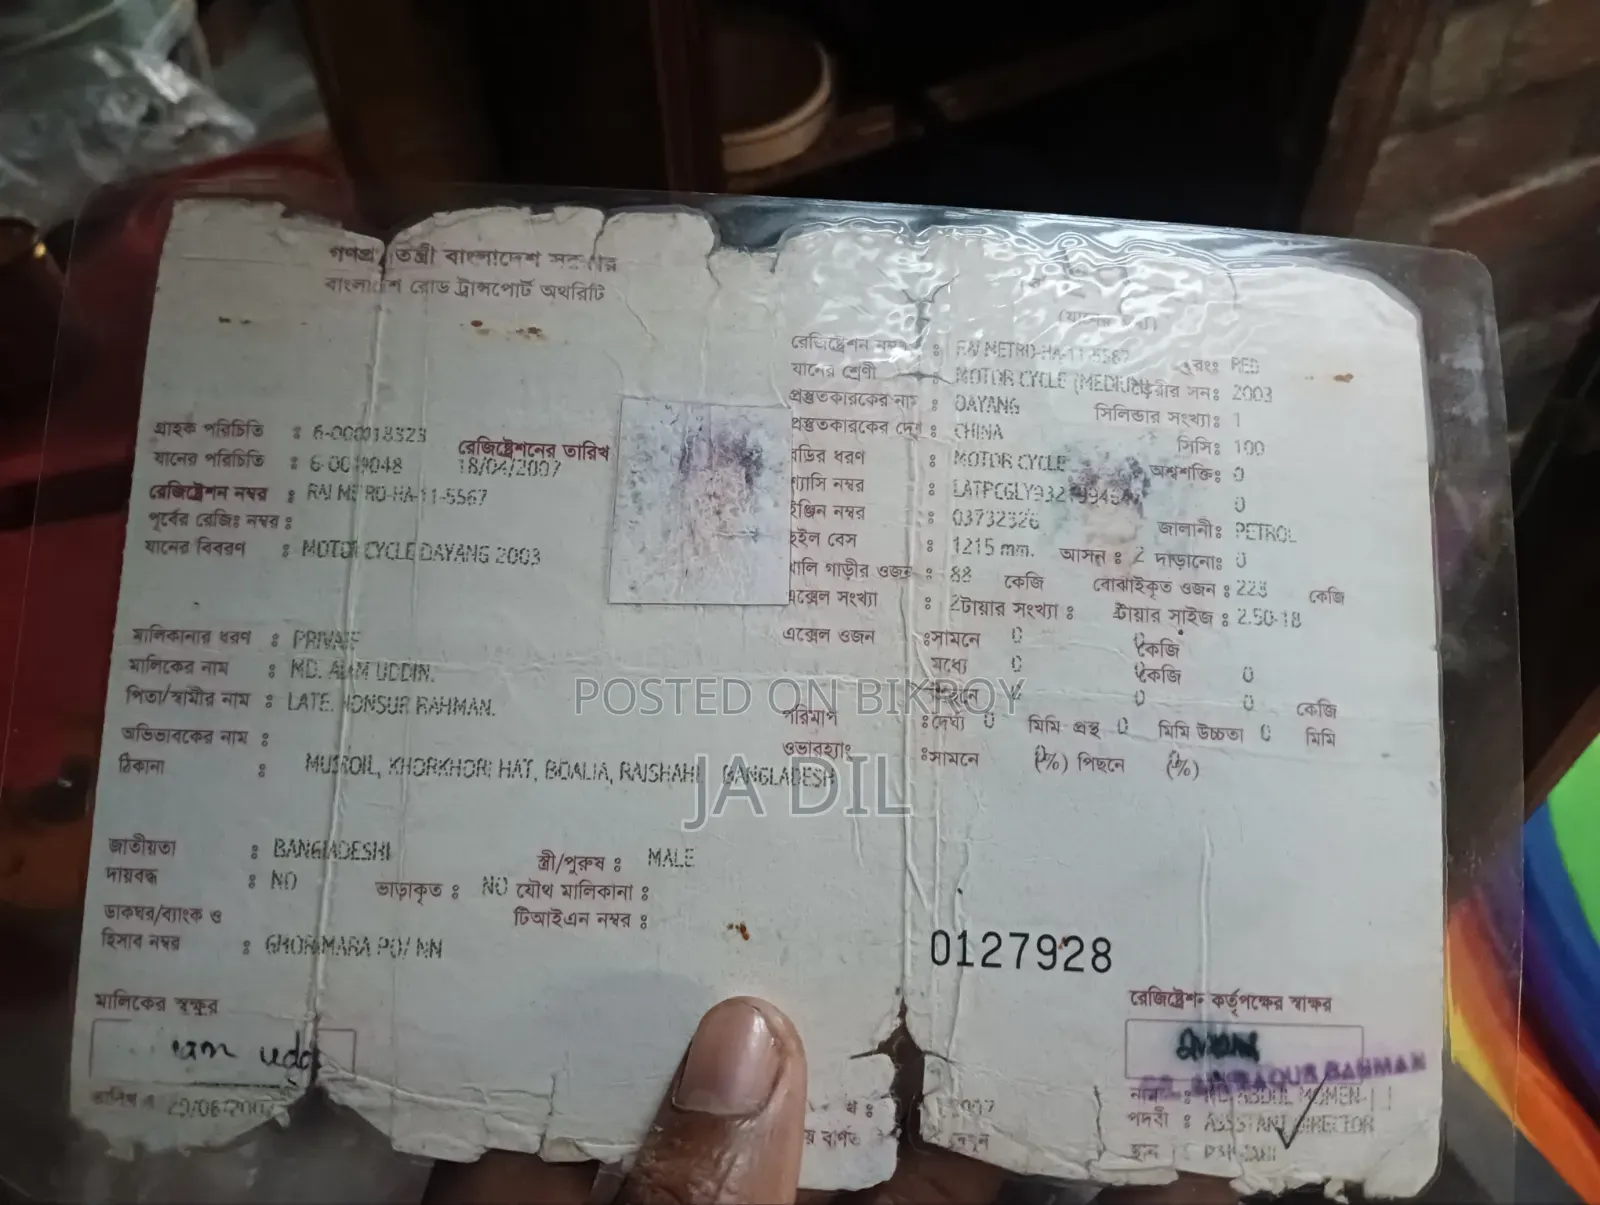 গণপ্রজাতন্ত্রী বাংলাদেশ সরকার
বাংলাদেশ রোড ট্রান্সপোর্ট অথরিটি
গ্রাহক পরিচিতি : 6-000018323
যানের পরিচিতি : 6-0019048
রেজিষ্ট্রেশনের তারিখ
18/04/2007
রেজিষ্ট্রেশন নম্বর : RAJ METRO-HA-11-5567
পূর্বের রেজিঃ নম্বর :
যানের বিবরণ : MOTOR CYCLE DAYANG 2003
মালিকানার ধরণ : PRIVATE
মালিকের নাম : MD. UDDIN.
পিতা/স্বামীর নাম : LATE. RAHMAN.
অভিভাবকের নাম :
ঠিকানা : KHORKHORI HAT, BOALIA, RAJSHAHI, BANGLADESH
জাতীয়তা : BANGLADESHI
স্ত্রী/পুরুষ : MALE
দায়বদ্ধ : NO
ভাড়াকৃত : NO যৌথ মালিকানা :
টিআইএন নম্বর :
ডাকঘর/ব্যাংক ও
হিসাব নম্বর : GHORAMARA PO/ NN
মালিকের স্বাক্ষর
uddi
তারিখ : /06/2007
রেজিষ্ট্রেশন নম্বর : RAJ METRO-HA-11-5567 রং: RED
যানের শ্রেণী : MOTOR CYCLE (MEDIUM) তৈরীর সন: 2003
প্রস্তুতকারকের নাম : DAYANG সিলিন্ডার সংখ্যা: 1
প্রস্তুতকারকের দেশ : CHINA সিসি: 100
বডির ধরণ : MOTOR CYCLE অশ্বশক্তি: 0
চ্যাসি নম্বর : 0
ইঞ্জিন নম্বর : 03732326 জালানী: PETROL
হুইল বেস : 1215 mm. আসন : 2 দাড়ানো: 0
খালি গাড়ীর ওজন : 88 কেজি বোঝাইকৃত ওজন : 223 কেজি
এক্সেল সংখ্যা : 2 টায়ার সংখ্যা : টায়ার সাইজ : 2.50-18
এক্সেল ওজন : সামনে 0 কেজি
মধ্যে 0 কেজি 0
পিছনে 0 0 0 কেজি
পরিমাপ : দৈর্ঘ্য 0 মিমি প্রস্থ 0 মিমি উচ্চতা 0 মিমি
ওভারহ্যাং : সামনে (%) পিছনে (%)
0127928
রেজিষ্ট্রেশন কর্তৃপক্ষের স্বাক্ষর
RAHMAN
নাম : MD. ABDUL MOMEN
পদবী : ASSISTANT DIRECTOR
স্থান :
POSTED ON BIKROY
JA DIL